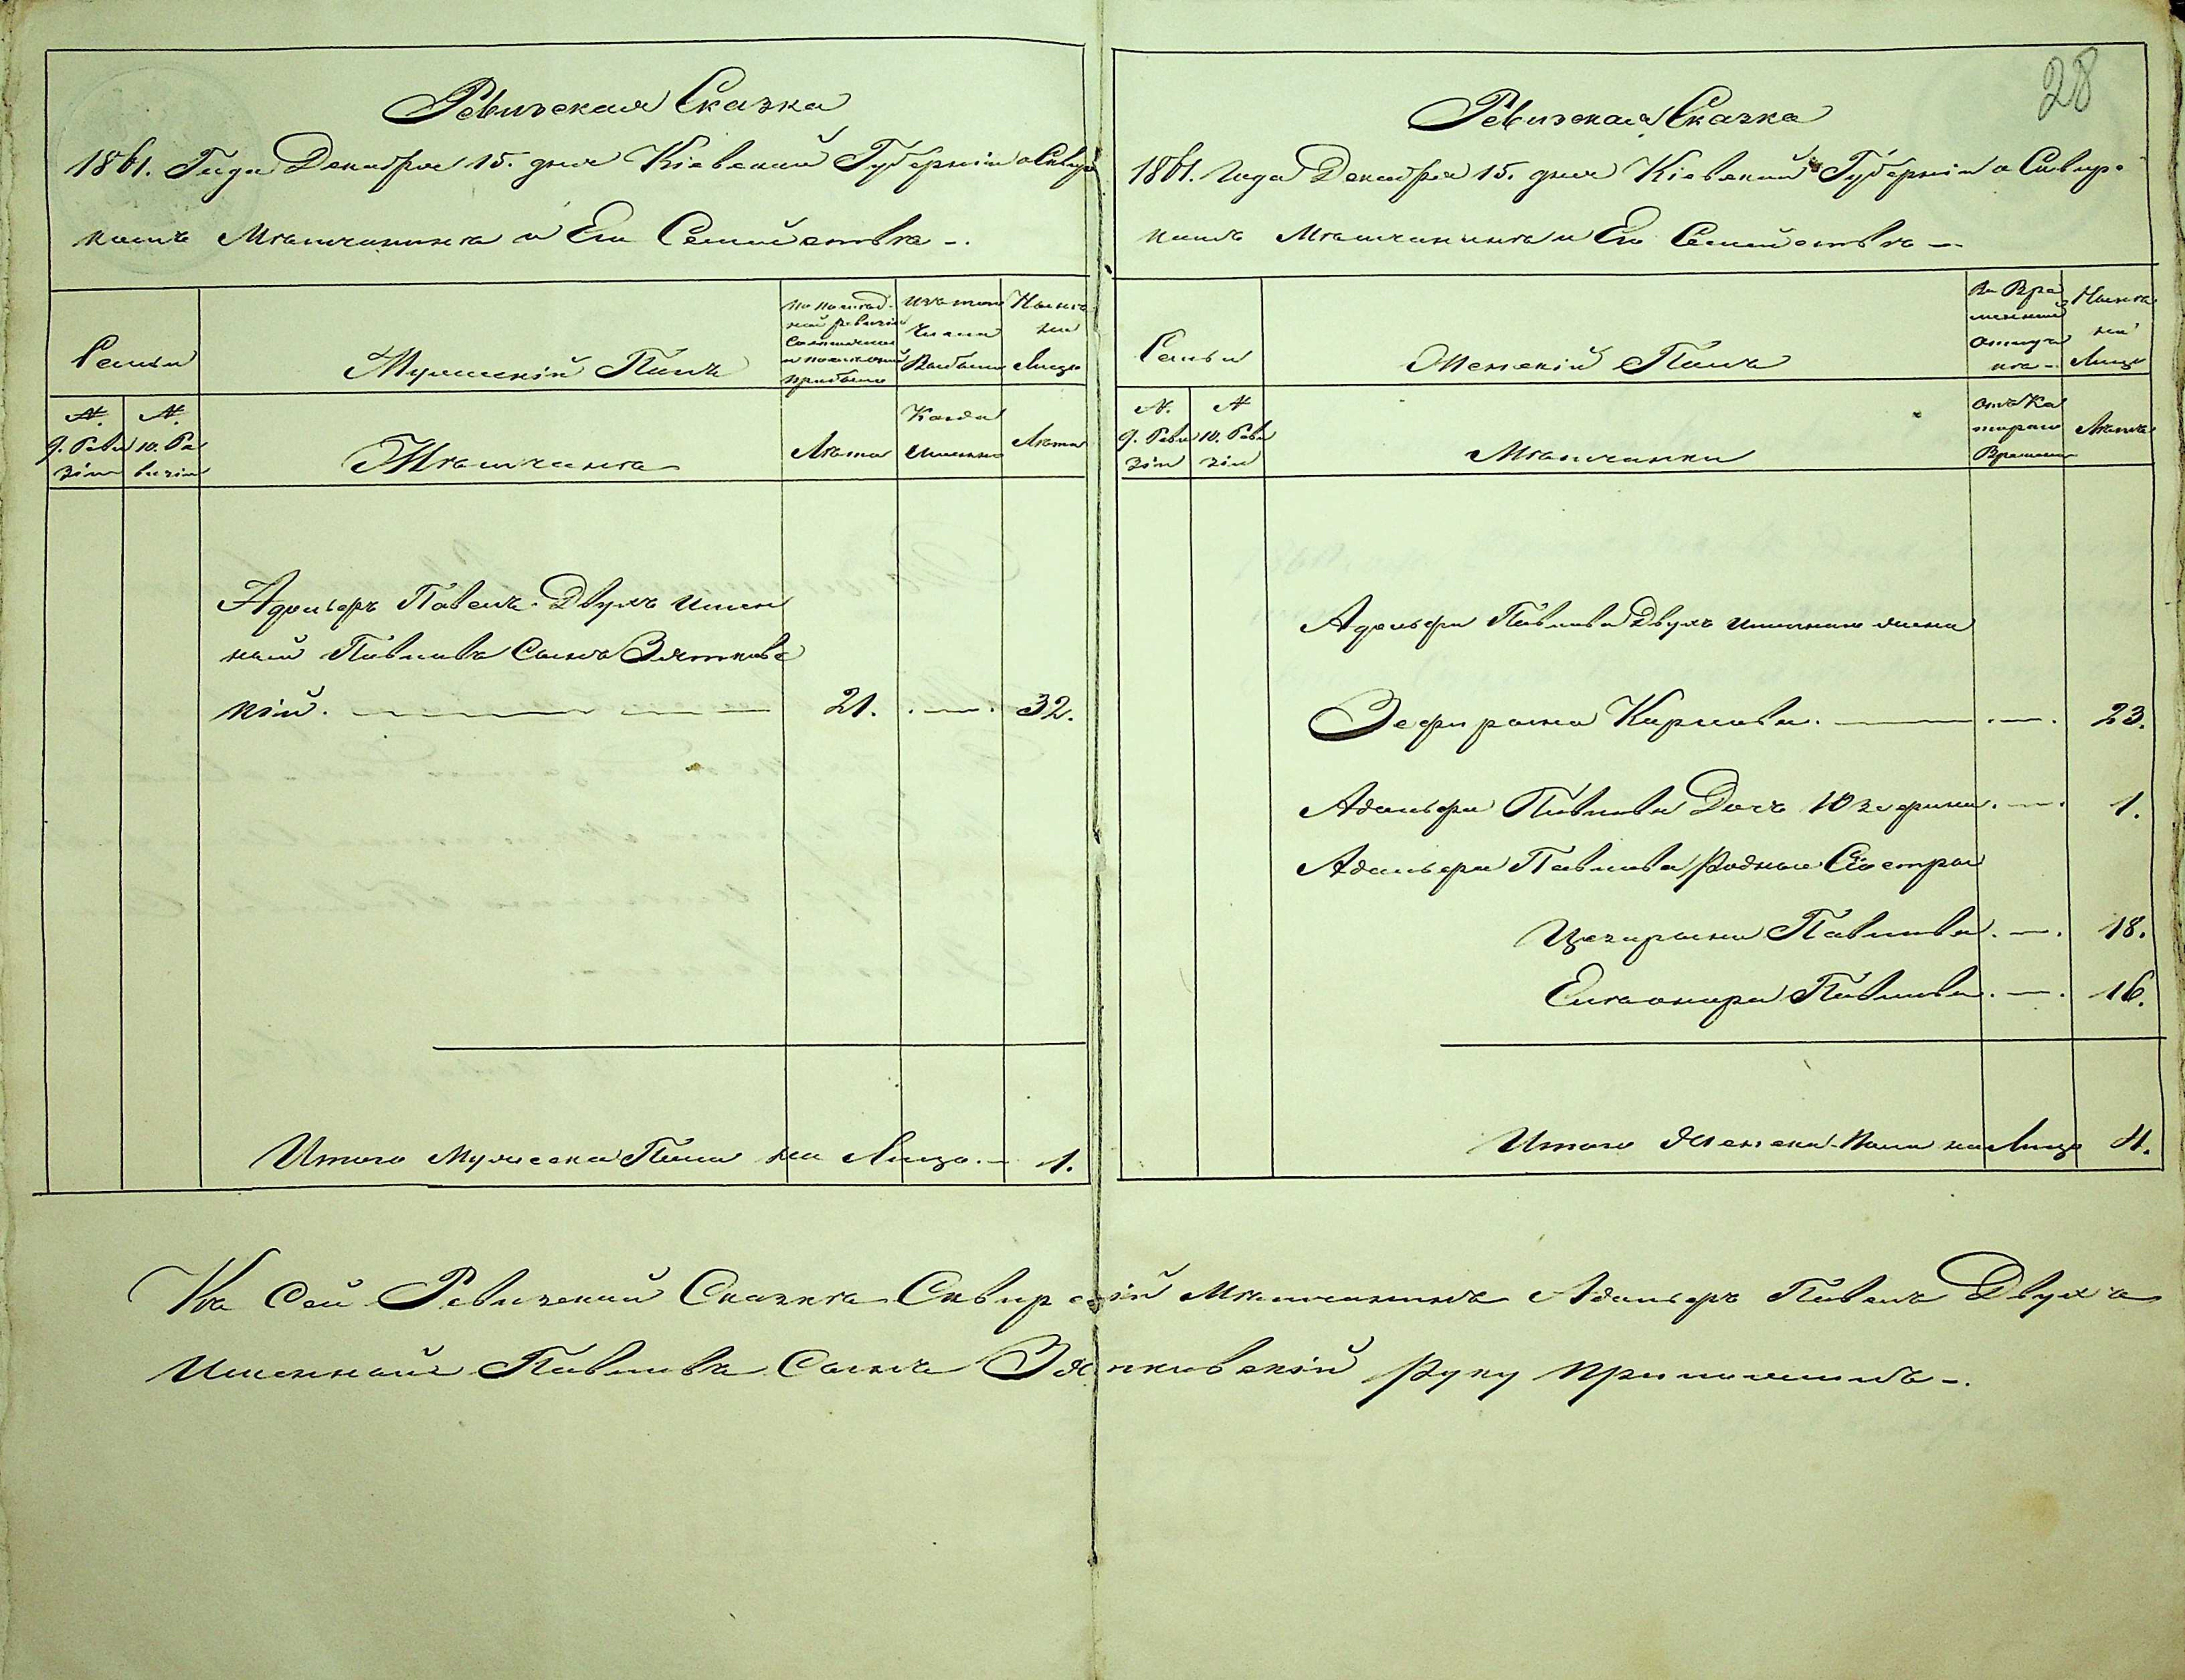 Ревизская Сказка
1861. Года Декабря 15. дня Кіевской Губерніи о Сквир
комъ Мѣщанинѣ и Его Семействѣ -.
Семьи
Мужескій Полъ
По послѣд-
ней ревизіи
Состояло
и послѣ оной
прибыло
Изъ того
Числа
Выбыло
Нынѣ
на
Лицо
№.
9. Реви
зіи
№.
10. Ре
визіи
Мѣщанинъ
Лѣта
Когда
Именно
Лѣта
Адольфъ Павелъ Двухъ имен
ной Павловъ Сынъ Зятковс
кій. 21. 32.
Итого Мужеска Пола на Лицо. - 1.
28
Ревизская Сказка
1861. Года Декабря 15. дня Кіевской Губерніи о Сквир-
комъ Мѣщанинѣ и Его Семействѣ -.
Семьи
Женскій Полъ
Во Вре
менной
отлуч
кѣ -
Нынѣ
на
Лицо
№.
9. Реви
зіи
№
10. Реви
зіи
Мѣщанки
Отъ Ко
тораго
Времени
Лѣта
Адольфа Павлова Двухъ именного жена
Зефирына Карлова. 23.
Адольфа Павлова Дочь Юзефина. 1.
Адольфа Павлова родные Сіостры
Цезарына Павлова. 18.
Елеонора Павлова. 16.
Итого Женска Пола на Лицо 4.
Къ Сей Ревизской Сказкѣ Сквирскій Мѣщанинъ Адольфъ Павелъ Двухъ
Именной Павловъ Сынъ Зятковскій руку приложилъ -.